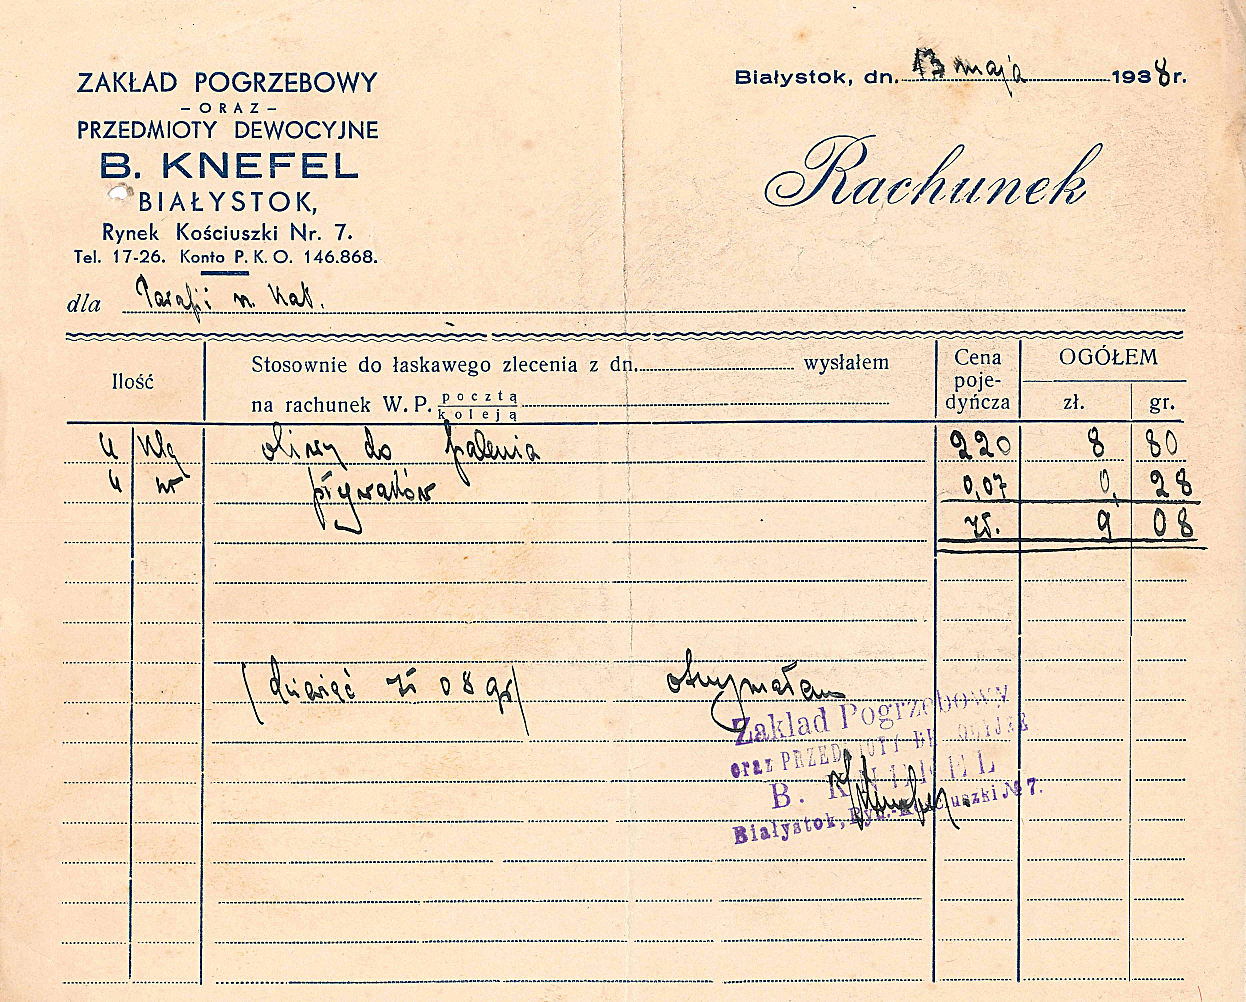 ZAKŁAD POGRZEBOWY
— ORAZ —
PRZEDMIOTY DEWOCYJNE
B. KNEFEL
BIAŁYSTOK,
Rynek Kościuszki Nr. 7.
Tel. 17-26. Konto P. K. O. 146.868.
Białystok, dn. 13 maja 1938 r.
Rachunek
dla Parafii n. Kat.
Ilość
Stosownie do łaskawego zlecenia z dn. wysłałem
na rachunek W. P. pocztą koleją
Cena poje-dyńcza
OGÓŁEM
zł. gr.
4 Klg oliwy do palenia 2 20 8 80
4 pływaków 0,07 0, 28
zł. 9 08
/ dziewięć zł 08 gr /
otrzymałam
Zakład Pogrzebowy
oraz PRZEDMIOTY DEWOCYJNE
B. KNEFEL
Białystok, Ryn. Kościuszki № 7.